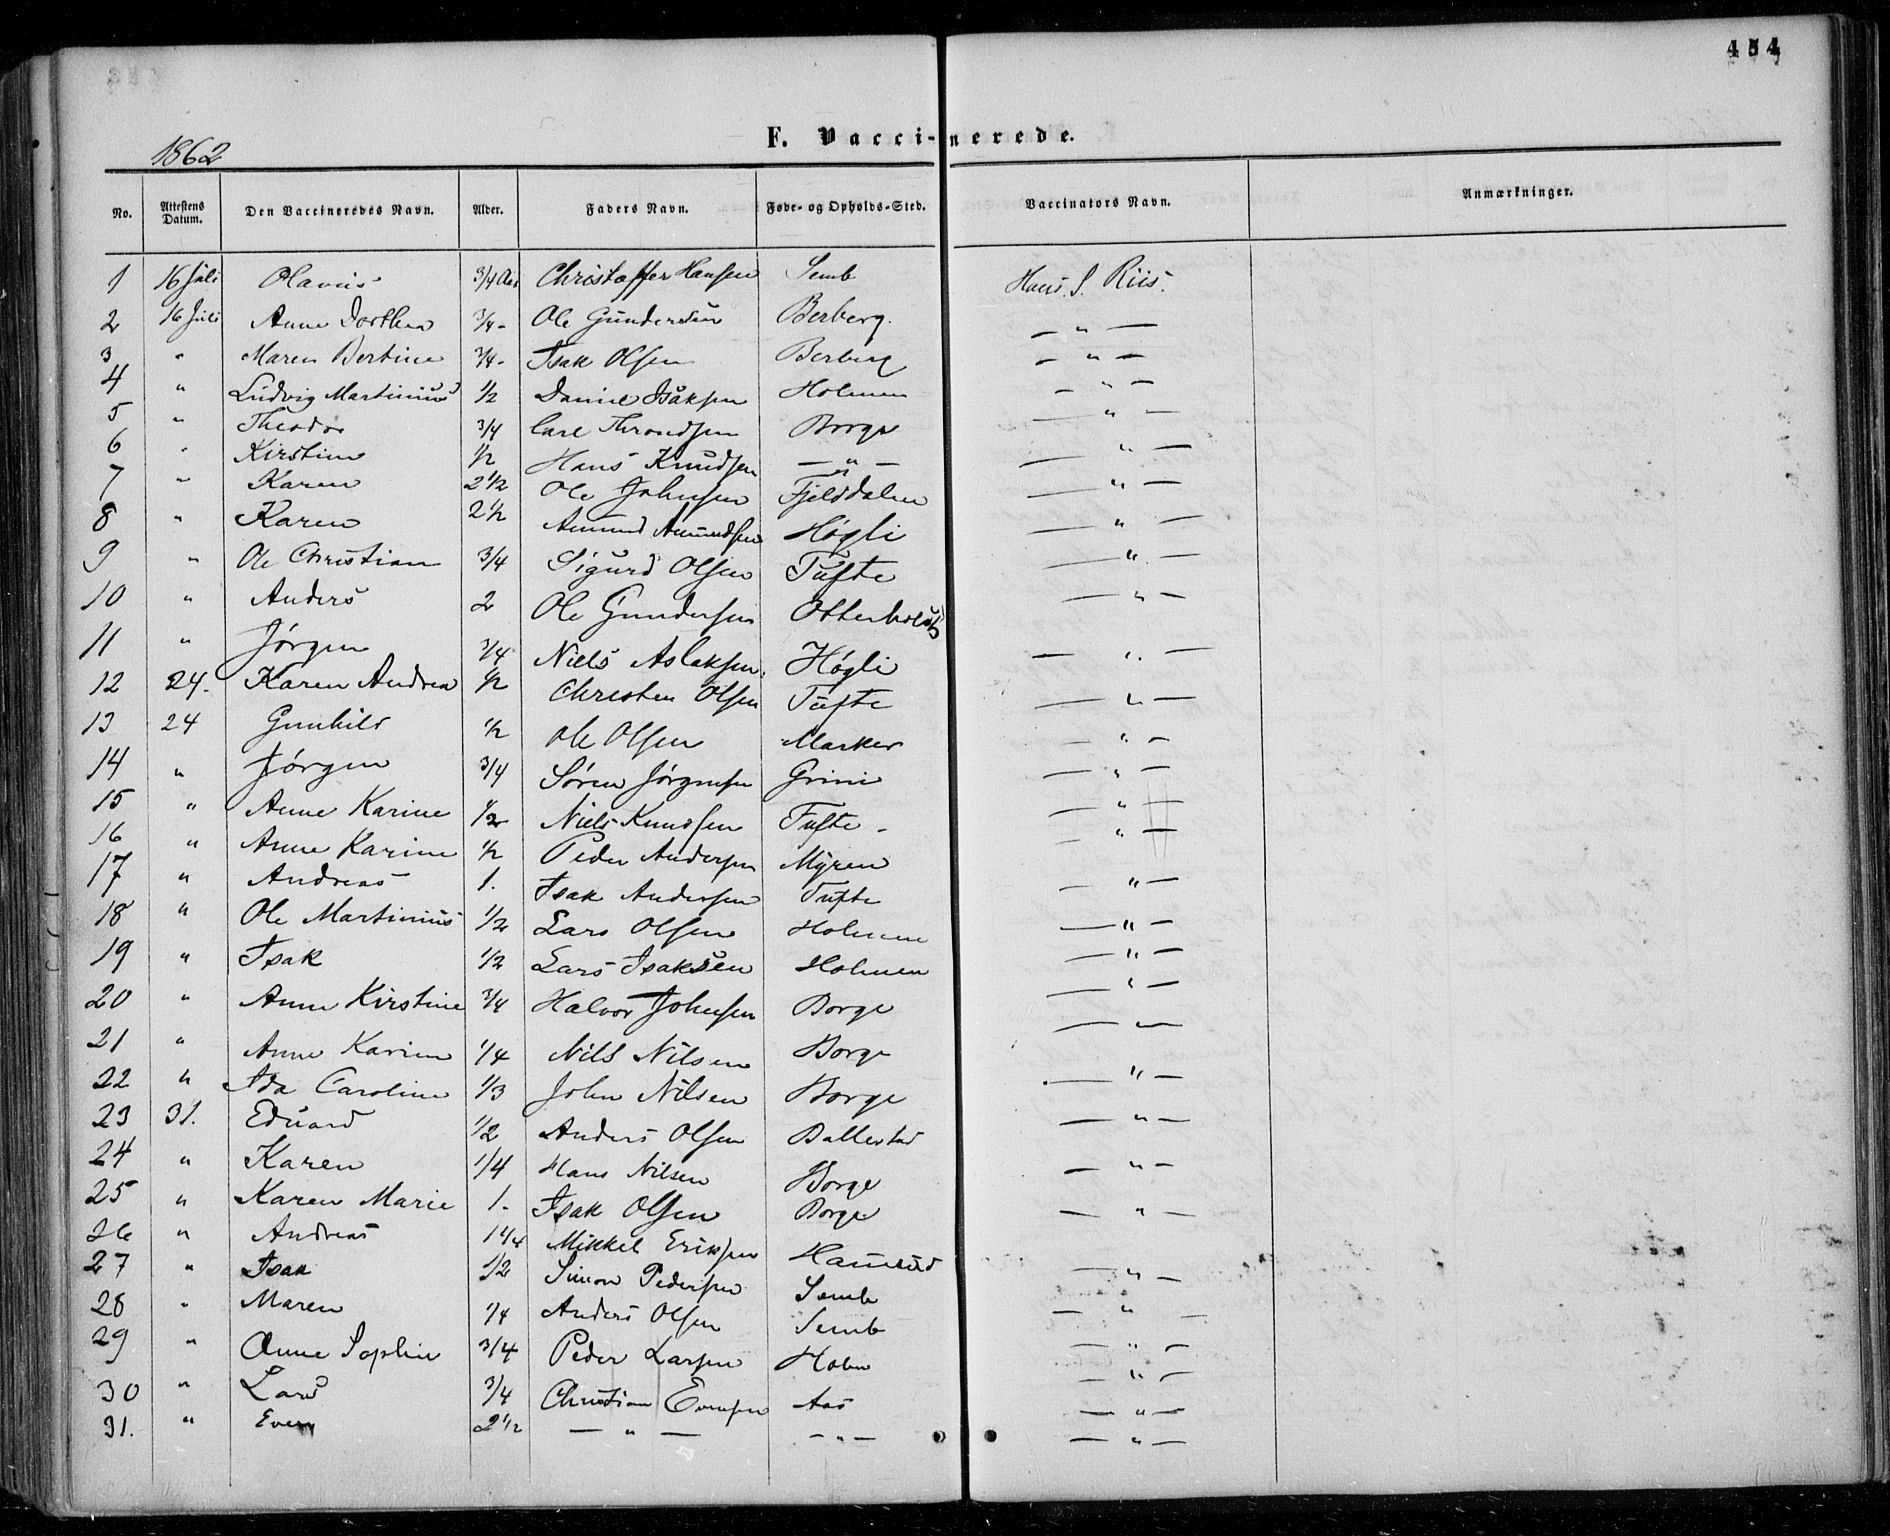 454
1862
F. Vacci-nerede.
No. Attestens Datum. Den Vaccineredes Navn. Alder. Faders Navn. Føde- og Opholds-Sted. Vaccinators Navn. Anmærkninger.
1 16 Juli Olavus 3/4 Aar Christoffer Hansen Semb Hans. S. Riis.
2 16 Juli Anne Dorthea 3/4 - Ole Gundersen Berberg. — " —
3 " Maren Bertine 3/4 - Isak Olsen Berberg — " —
4 " Ludvig Martinius 1/2 Daniel Isaksen Holmen — " —
5 " Theodor 3/4 Carl Throndsen Borge — " —
6 " Kirstine 1/2 Hans Knudsen — " — — " —
7 " Karen 2 1/2 Ole Johnsen Fjelddalen — " —
8 " Karen 2 1/2 Amund Amundsen Høgli — " —
9 " Ole Christian 3/4 Sigurd Olsen Tufte — " —
10 " Anders 2 Ole Gundersen Otterholdt — " —
11 " Jørgen 3/4 Niels Aslaksen. Høgli — " —
12 24. Karen Andrea 1/2 Christen Olsen Tufte — " —
13 24 Gunhild 1/2 Ole Olsen Marker — " —
14 " Jørgen 3/4 Søren Jørgensen Grini — " —
15 " Anne Karine 1/2 Niels Knudsen Tufte - — " —
16 " Anne Karine 1/2 Peder Andersen Myren — " —
17 " Andreas 1. Isak Andersen Tufte — " —
18 " Ole Martinius 1/2 Lars Olsen Holmen — " —
19 " Isak 1/2 Lars Isaksen Holmen — " —
20 " Anne Kirstine 3/4 Halvor Johnsen Borge — " —
21 " Anne Karine 1/4 Nils Nilsen Borge — " —
22 " Ida Caroline 1/3 John Nilsen Borge — " —
23 31. Eduard 1/2 Anders Olsen Ballestad — " —
24 " Karen 1/4 Hans Nilsen Borge — " —
25 " Karen Marie 1. Isak Olsen Borge — " —
26 " Andreas 1 1/4 Mikkel Eriksen
27 " Isak 1/2 Simon Pedersen Semb — " —
28 " Maren 1/4 Anders Olsen Semb — " —
29 " Anne Sophie 3/4 Peder Larsen Holm — " —
30 " Lars 3/4 Christian Evensen Aas — " —
31. " Even 2 1/2 — " — — " — — " —